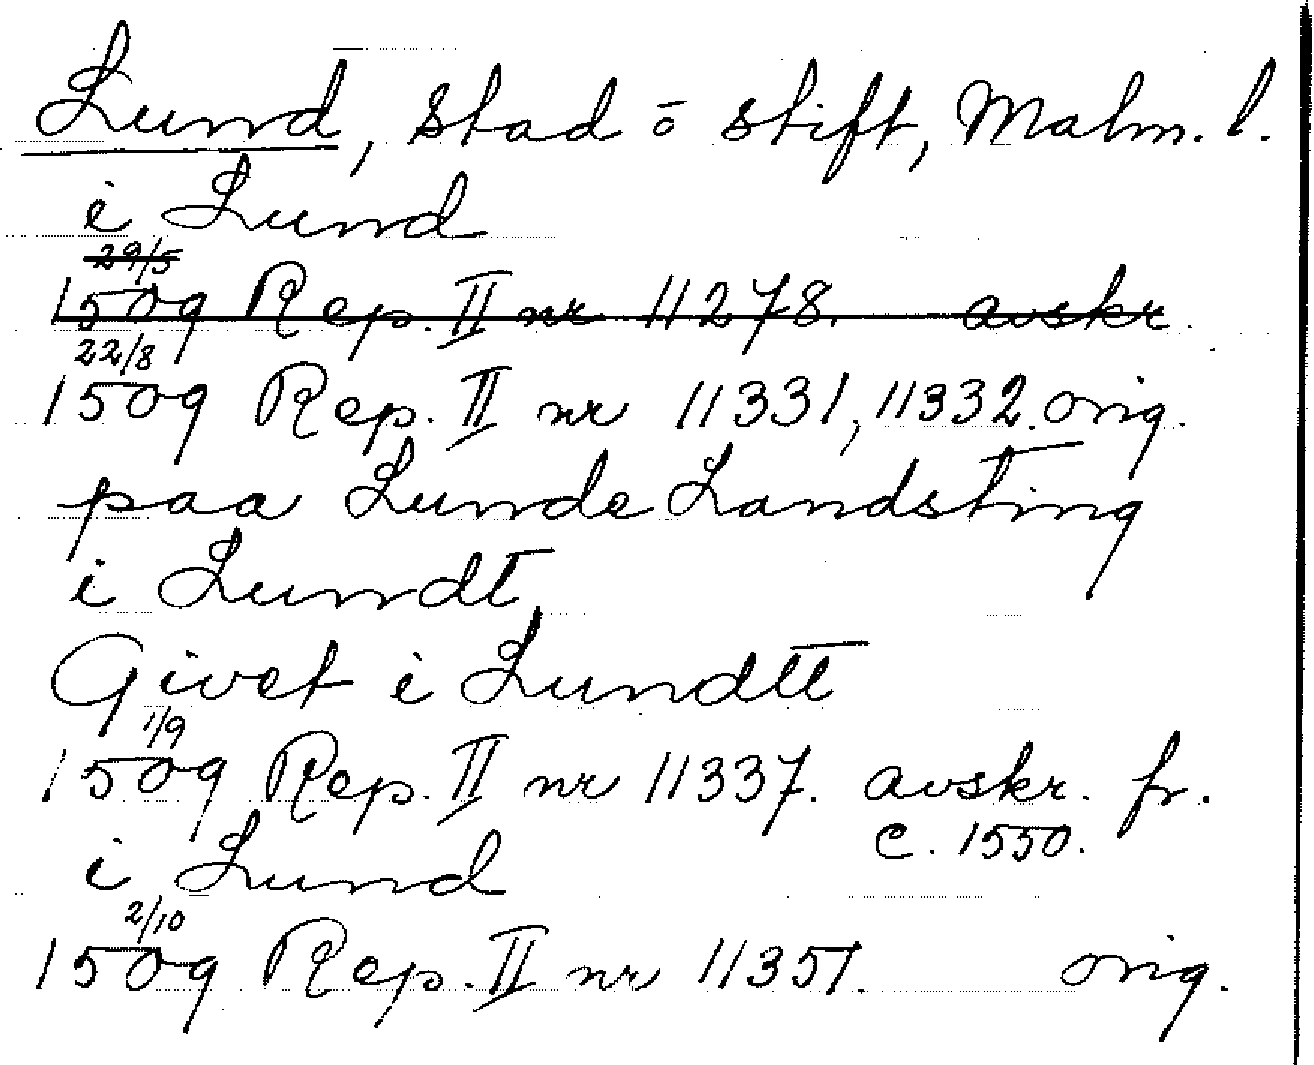 Lund, stad o stift, Malm. l.
i Lund
29/5
1509 Rep. II nr 11278. avskr.
22/8
1509 Rep. II nr 11331, 11332. orig.
paa Lunde Landsting
i Lundt
Givet i Lundtt
1/9
1509 Rep. II nr 11337. avskr. fr.
c. 1550.
i Lund
2/10
1509 Rep. II nr 11351. orig.